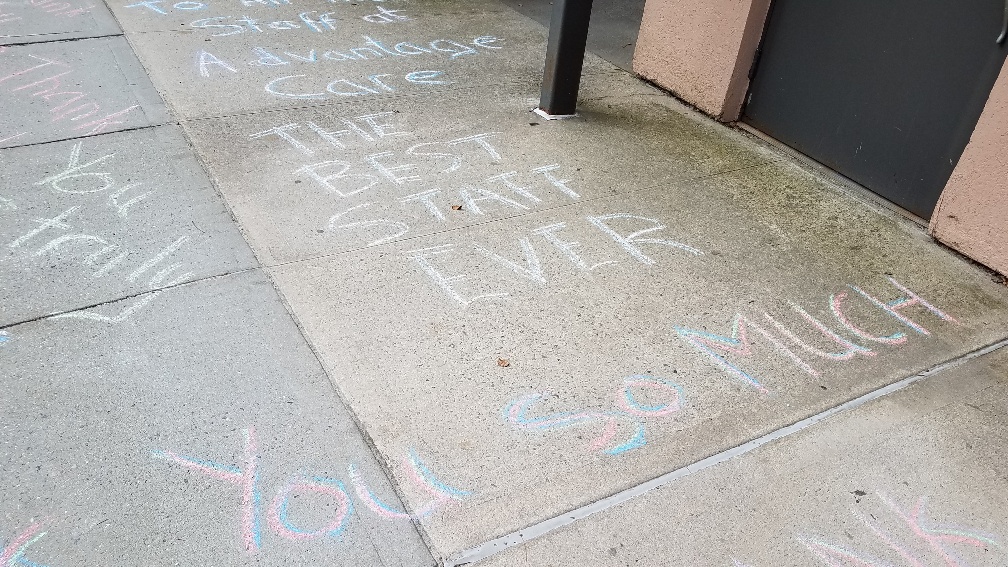 Staff at
Advantage
Care
THE
BEST
STAFF
EVER
Thank
You
truly
YOU SO MUCH